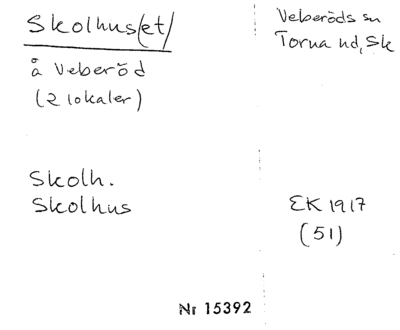 Skolhus/et/
å Veberöd
(2 lokaler)
Veberöds sn
Torna hd, Sk
Skolh.
Skolhus
EK 1917
(51)
Nr 15392